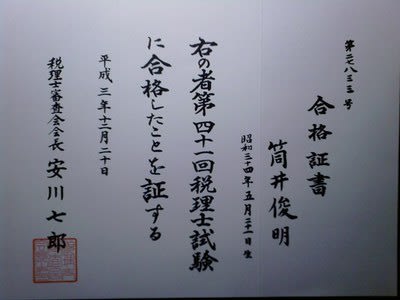 第二七八三三号
合格証書
筒井俊明
昭和三十四年五月二十一日生
右の者第四十一回税理士試験
に合格したことを証する
平成三年十二月二十日
税理士審査会会長 安川七郎